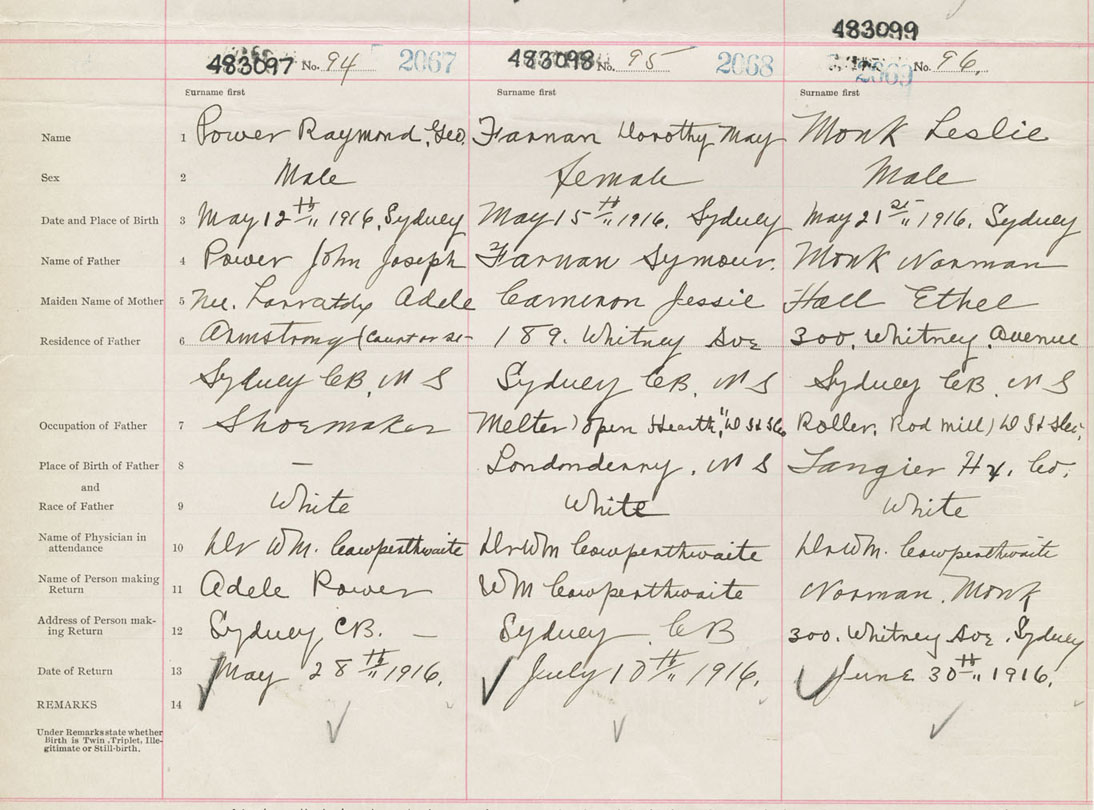 483099
483097 No. 94 2067 483098 No. 95 2068 2069 No. 96.
Surname first Surname first Surname first
Name 1 Power Raymond, Geo. Farnan Dorothy May Monk Leslie
Sex 2 Male female Male
Date and Place of Birth 3 May 12th " 1916, Sydney May 15th " 1916. Sydney May 21st " 1916. Sydney
Name of Father 4 Power John Joseph Farnan Symour. Monk Norman
Maiden Name of Mother 5 Adele Cameron Jessie Hall Ethel
Residence of Father 6 Armstrong 189. Whitney Ave 300. Whitney Avenue
Sydney CB, N S Sydney CB, N S Sydney CB. N S
Occupation of Father 7 Shoemaker Melter) Open Hearth, Roller, Rod mill)
Place of Birth of Father 8 — Londonderry, N S Tangier Hx. Co.
and
Race of Father 9 White White White
Name of Physician in 10 Dr WM. Cowperthwaite Dr WM Cowperthwaite Dr WM. Cowperthwaite
attendance
Name of Person making 11 Adele Power WM Cowperthwaite Norman. Monk
Return
Address of Person mak- 12 Sydney, CB. — Sydney CB 300. Whitney Ave, Sydney
ing Return
Date of Return 13 May 28th " 1916. July 10th " 1916. June 30th " 1916.
REMARKS 14
Under Remarks state whether
Birth is Twin, Triplet, Ille-
gitimate or Still-birth.